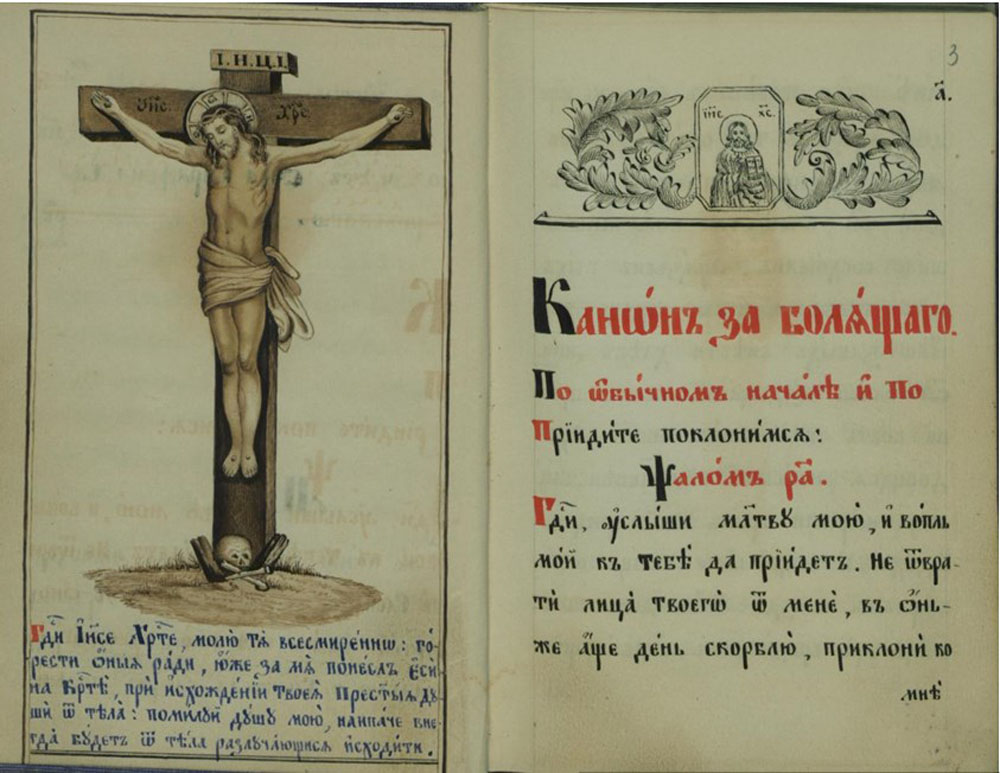 І.Н.Ц.І.
І҆И҃С. ХР҃С.
Гдⷭ҇и І҆и҃се Хрⷭ҇те, молю̀ тѧ̀ всесмире́ннѡ: го́-
рести ѻ҆́ныѧ ра́ди, ю҆́же за мѧ̀ поне́слъ є҆сѝ
на Крⷭ҇тѣ̀, при и҆схожде́нїи Твоеѧ̀ Прест҃ы́ѧ дꙋ-
шѝ ѿ тѣ́ла: поми́лꙋй дꙋ́шꙋ мою̀, наипа́че вне-
гда̀ бꙋ́детъ ѿ тѣ́ла разлꙋча́ющисѧ и҆сходи́ти.
3
а҃.
І҆И҃С. ХС҃.
Канѡ́нъ за болѧ́щаго.
По ѡ҆бы́чномъ нача́лѣ и҆ По
Прїиди́те поклони́мсѧ:
Ѱало́мъ ра҃.
Гдⷭ҇и, ᲂу҆слы́ши мл҃твꙋ мою̀, и҆ во́пль
мо́й къ тебѣ̀ да прїи́детъ. Не ѿвра-
тѝ лица̀ твоегѡ̀ ѿ менє̀, въ ѻ҆́нь-
же а҆́ще де́нь скорблю̀, приклонѝ ко
мнѣ̀